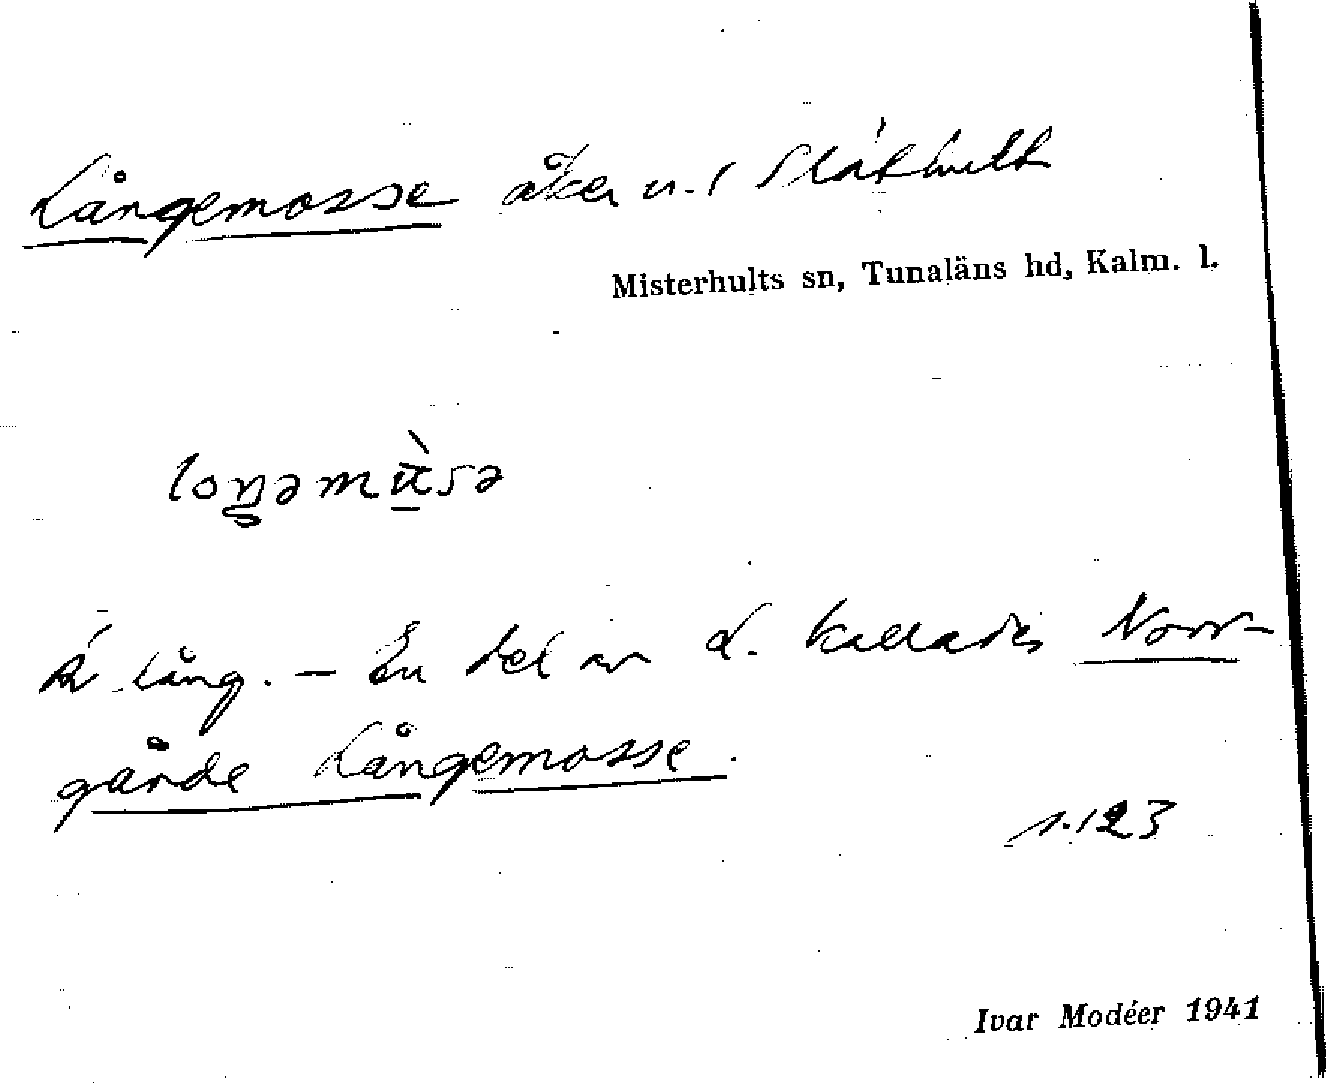 Långemosse åker n. i Släthult
Misterhults sn, Tunaläns hd, Kalm. l.
loŋəmùsə
Är lång. – En del av L. kallades Norr-
gärde Långemosse.
s. 123
Ivar Modéer 1941